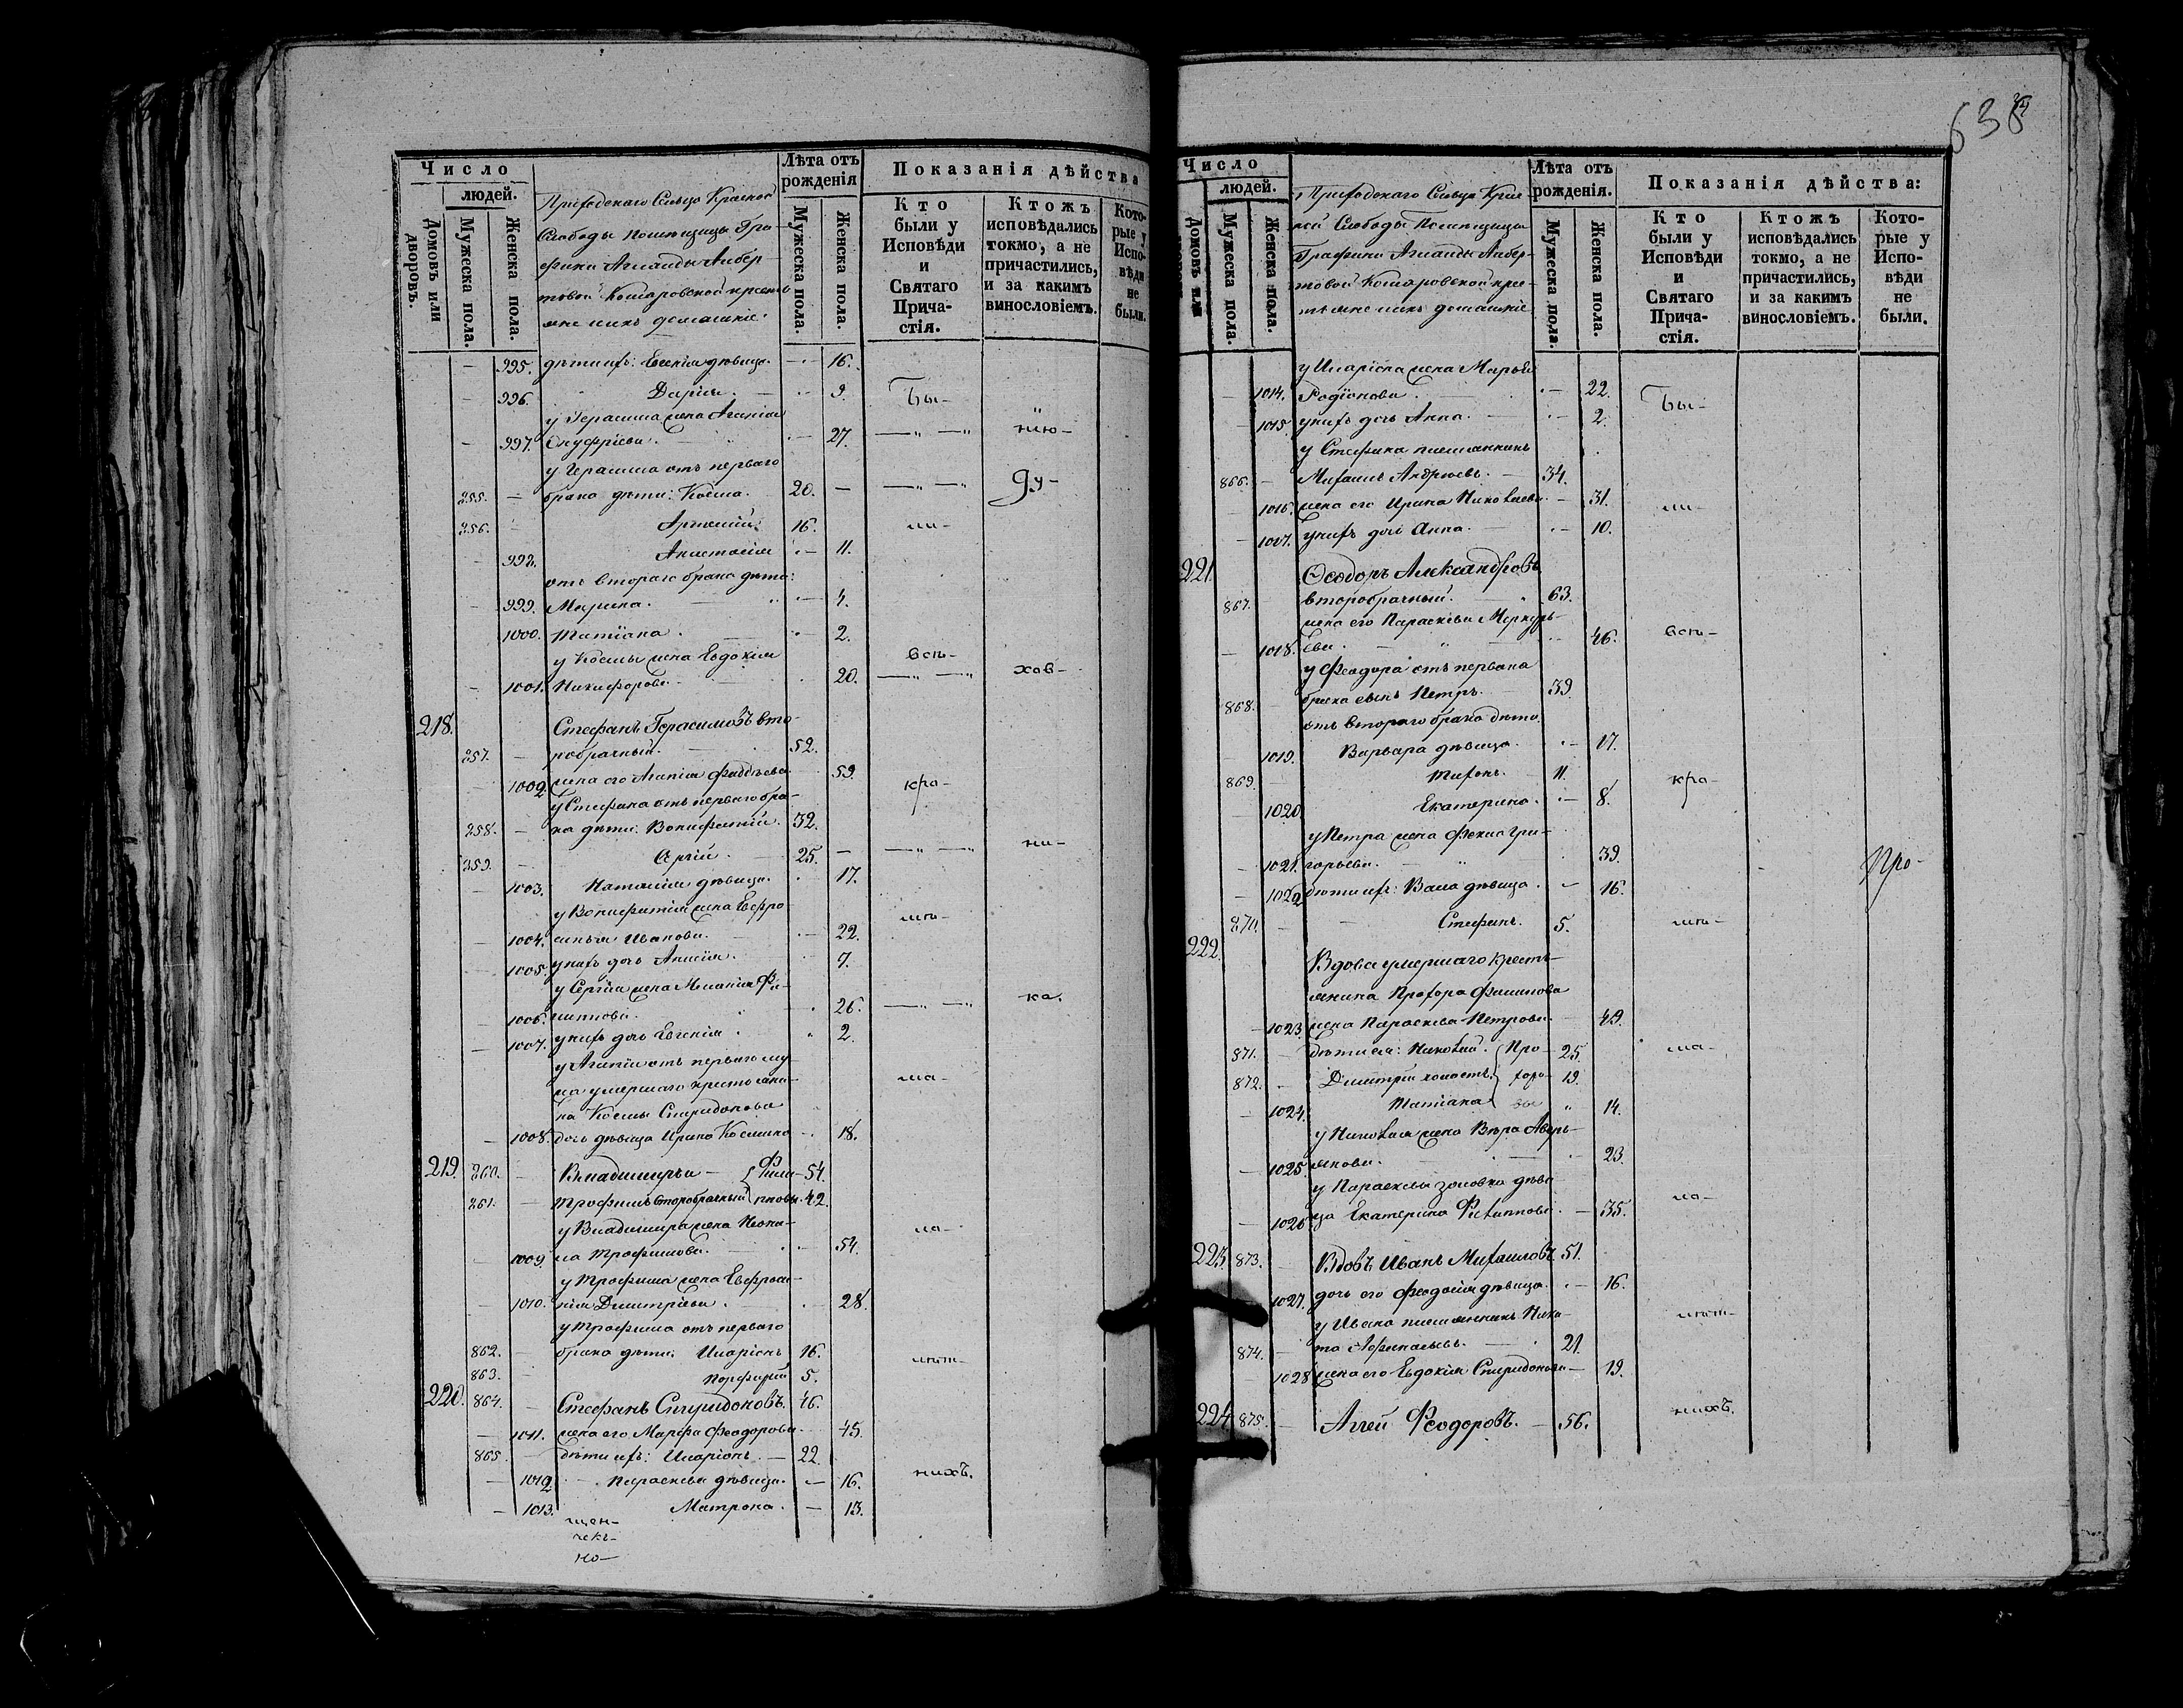 638
Число
людей.
Домовъ или дворовъ.
Мужеска пола.
Женска пола.
Приходскаго Сельца Красной
Слободы помѣщицы Гра-
фини
Комаровской крестья
не ихъ домашніе.
Лѣта отъ рожденія
Мужеска пола.
Женска пола.
Показанія дѣйства
Кто были у Исповѣди и Святаго Прича-стія.
Ктожъ исповѣдались токмо, а не причастились, и за какимъ винословіемъ.
Кото-рые у Испо-вѣди не были.
— 995. дѣти ихъ: Евгенія дѣвица. — 16.
— 996. Дарія. — 9. Бы-
у Герасима жена Агапія
— 997. Онуфріева. — 27. —„—„ нію-
у Герасима отъ перваго
255. — брака дѣти: Косма. 20. — —„—„ ду-
256. Артемій. 16. ли-
998. Анастасія — 11.
отъ втораго брака дѣти:
— 999. Марина. — 4.
1000. Татіана. 2.
у Космы жена Евдокія все-
— 1001. Никифорова. 20. —„—„ хов-
218. Стефанъ Герасимовъ вто-
257. — робрачный. 52.
— 1002. жена его Агапія Фаддѣева. 59. кра-
у Стефана отъ перваго бра-
258. — ка дѣти: Вонифатій. 32.
259. — Сергій. 25. — —„—„ ни-
— 1003. Наталія дѣвица. 17.
у Вонифатія жена Евфро- мѣ-
— 1004. синья Иванова. 22.
1005. у нихъ дочь Анисія. 7.
у Сергія жена Меланія Фи-
— 1006. липпова. 26. —„—„ ка.
— 1007. у нихъ дочь Евгенія. 2.
у Агапіи отъ перваго му-
жа умершаго крестьяни- ма-
на Космы Спиридонова
— 1008. дочь дѣвица Ирина Космина — 18.
219. 260. — Владиміръ — { Фили- 54.
261. — Трофимъ второбрачный пповы. 42.
у Владиміра жена
— 1009. Трофимова. — 54. ла-
у Трофима жена Евфроси-
— 1010. нія Димитріева. 28.
у Трофима отъ перваго
862. — брака дѣти: Иларіонъ 16. лют-
863. — Порфирій 5.
220. 864. — Стефанъ Спиридоновъ. 46.
— 1011. жена его Марфа Феодорова. 45.
865. — дѣти ихъ: Иларіонъ. — 22
— 1012. Параскева дѣвица. — 16. нихъ.
— 1013. Матрона. — 13.
щен-
чекъ-
но-
Число
людей.
Домовъ или
Мужеска пола.
Женска пола.
Приходскаго Сельца Крас-
ной Слободы Помѣщицы
Графини
Комаровской кре-
стьяне ихъ домашніе
Лѣта отъ рожденія.
Мужеска пола.
Женска пола.
Показанія дѣйства:
Кто были у Исповѣди и Святаго Прича-стія.
Ктожъ исповѣдались токмо, а не причастились, и за какимъ винословіемъ.
Кото-рые у Испо-вѣди не были.
у Иларіона жена Марья
— 1014. Родіонова. — 22. Бы-
— 1015. у нихъ дочь Анна. — 2.
у Стефана племянникъ
866. — Михаилъ Андреевъ. — 34.
— 1016. жена его Ирина Николаева. — 31. ли-
— 1017. у нихъ дочь Анна. — 10.
221. Ѳеодоръ Александровъ
867. — второбрачный. 63.
жена его Параскева Меркурь-
— 1018. ева. 46. все-
у Феодора отъ перваго
868. — брака сынъ Петръ. 39.
отъ втораго брака дѣти.
1019. Варвара дѣвица. — 17.
869. Тихонъ. — 11. кра-
— 1020. Екатерина. — 8.
у Петра жена Фекла Гри-
— 1021. горьева. 39. Про-
— 1022. дѣти ихъ: Васса дѣвица. — 16.
870. — Стефанъ. 5. мѣ-
222. Вдова умершаго кресть-
янина Прохора Филиппова
— 1023. жена Параскева Петрова. 49.
871. — дѣти ея: Николай. { Про- 25. ма-
872. — Димитрій холостъ. хоро- 19.
— 1024. Татіана вы „ 14.
у Николая жена Вѣра Аверь-
— 1025. янова. — 23.
у Параскевы золовка дѣви-
— 1026. ца Екатерина Филиппова. — 35. ла-
223. 873. — Вдовъ Иванъ Михаиловъ 51.
1027. дочь его Феодосія дѣвица. — 16.
у Ивана племянникъ Ники- лют-
874. — та Афанасьевъ. — 21.
— 1028. жена его Евдокія Спиридонова — 19.
224. 875. — Аггей Феодоровъ. — 56. нихъ.